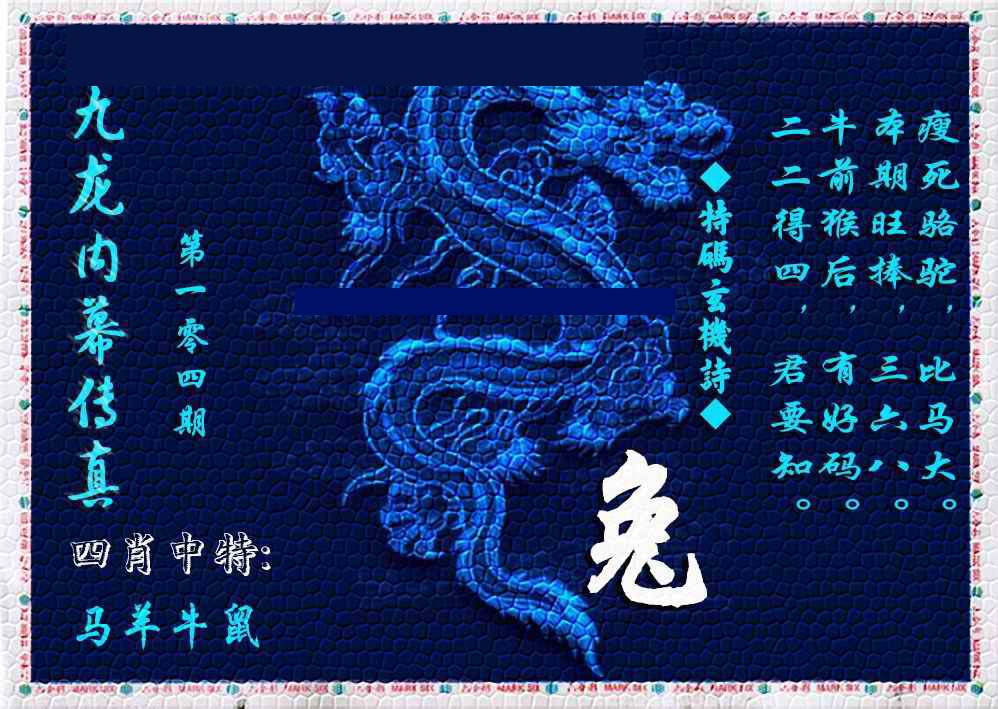 九龙内幕传真
第一零四期
四肖中特:
马羊牛鼠
◆特碼玄機詩◆
瘦死骆驼，比马大。
本期旺捧，三六八。
牛前猴后，有好码。
二二得四，君要知。
兔
六合彩 MARK SIX